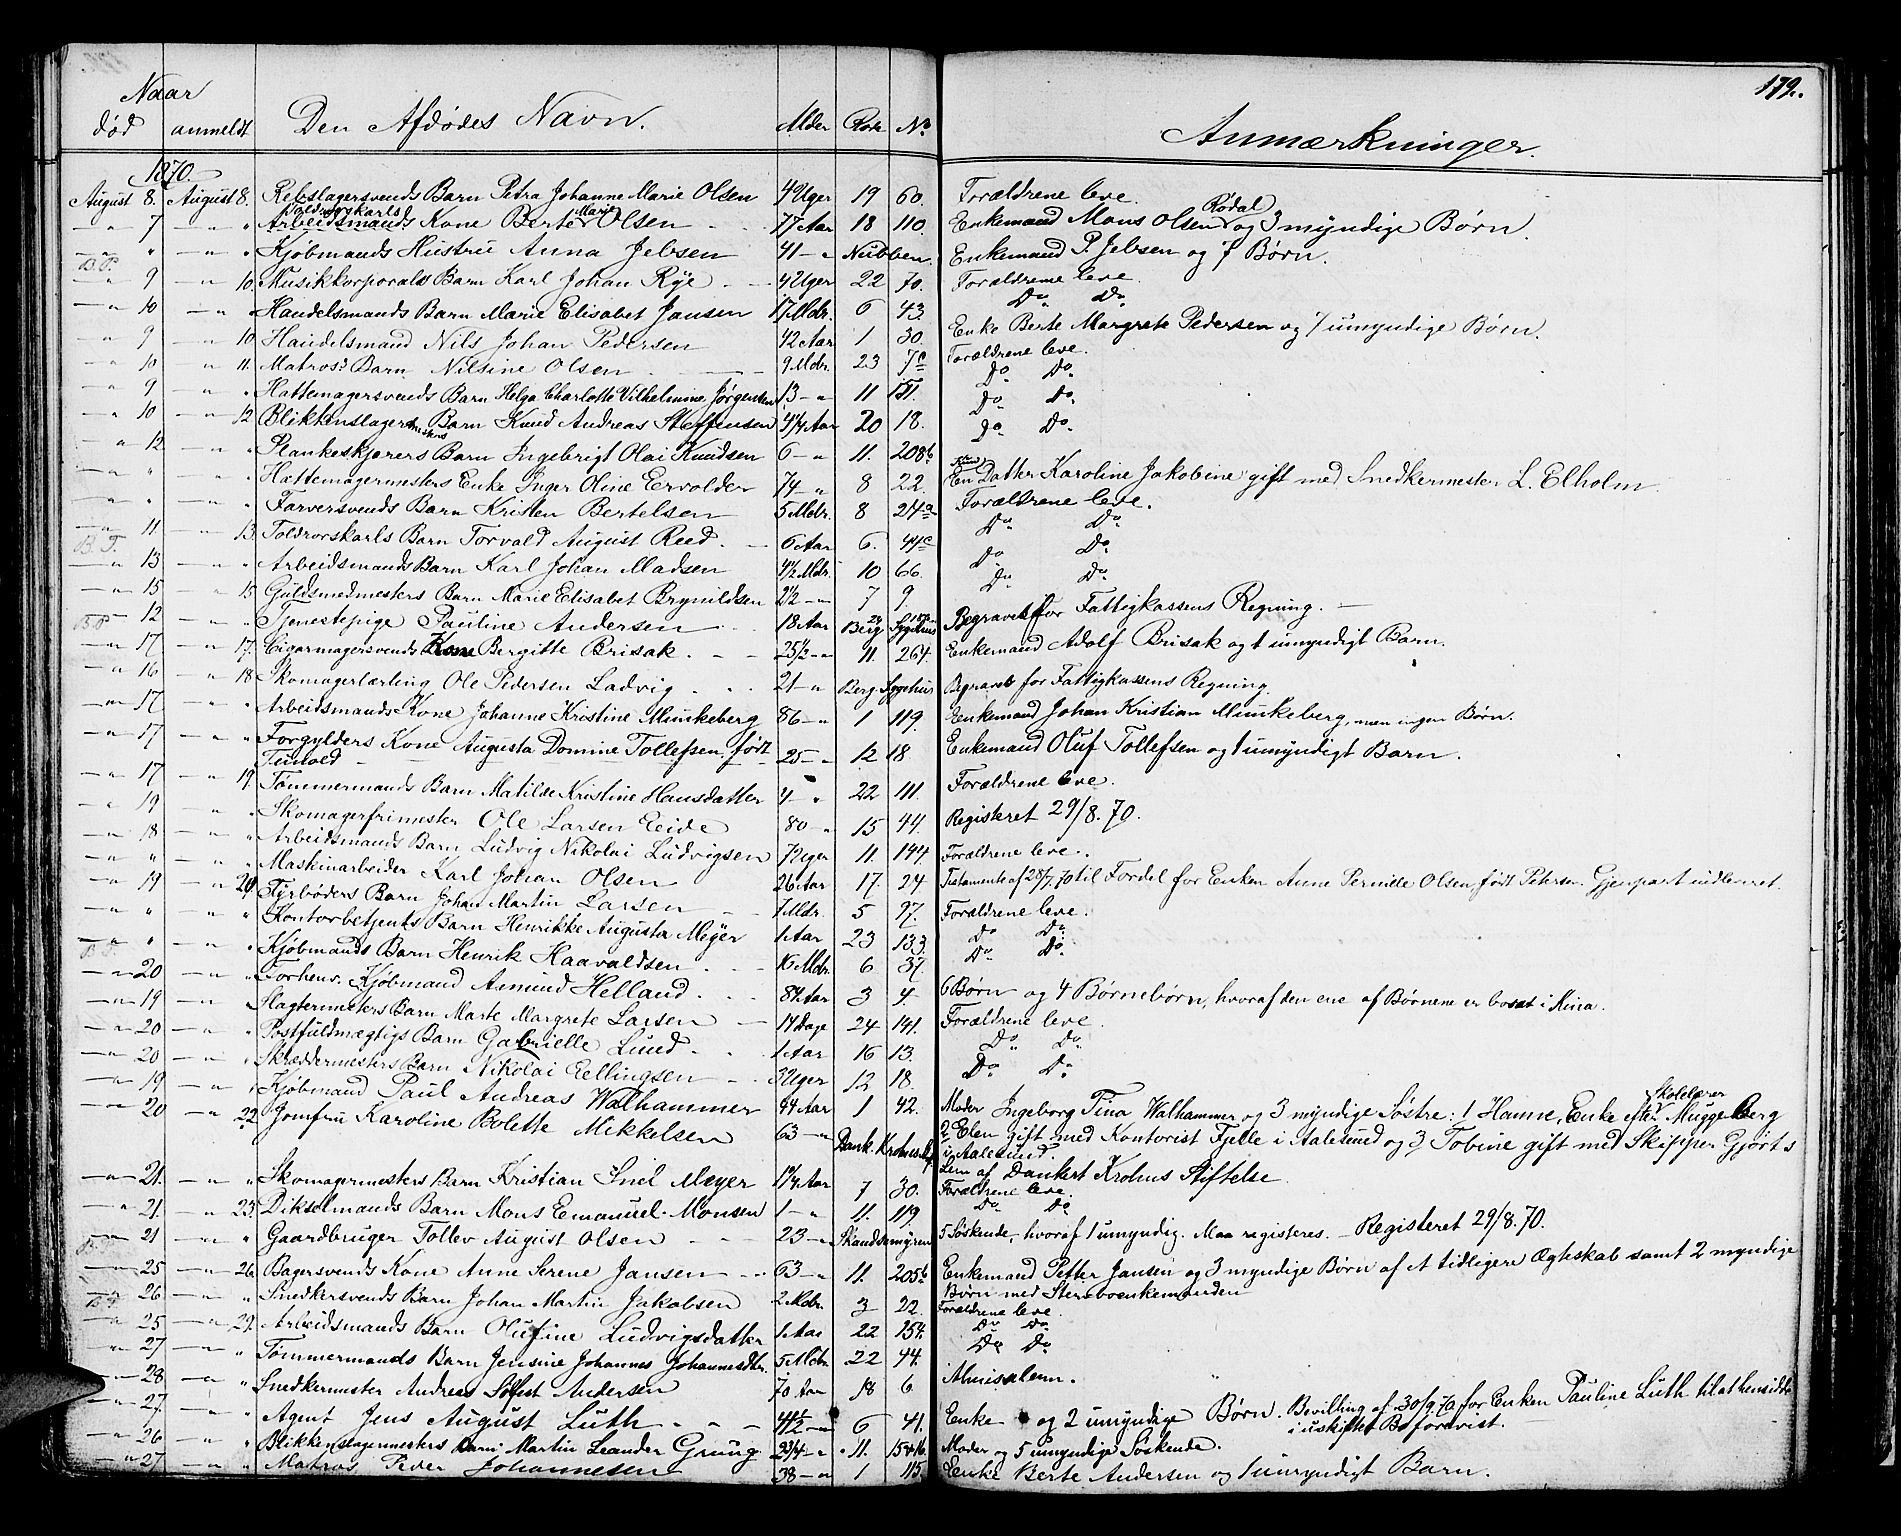 179.
Naar
død anmeldt Den Afdødes Navn. Alder Rode No Anmærkninger.
1870.
August 8. August 8. Rebslagersvends Barn Petra Johanne Marie Olsen 4 Uger 19 60. Forældrene leve.
" 7 " " Arbeidsmands Kone Berte Marie Olsen 77 Aar 18 110. Enkemand Mons Olsen Rødal og 3 myndige Børn.
" " " Kjøbmands Hustru Anna Jebsen 41 " Nubben. Enkemand P. Jebsen og 7 Børn.
B.F.
" 9 " 10. Musikkorporals Barn Karl Johan Rye 4 Uger 22 70. Forældrene leve.
" 10 " " Handelsmands Barn Marie Elisabet Jansen 17 Mdr. 6 43. Do Do
" 9 " 10. Handelsmand Nils Johan Pedersen 42 Aar 1 30. Enke Berte Margrete Pedersen og 7 umyndige Børn.
" 10 " 11. Matros's Barn Nilsine Olsen 9 Mdr. 23 7c Forældrene leve.
" 9 " " Hattemagersvends Barn Helga Charlotte Vilhelmine Jørgensen 13 " 11 151. Do Do
" 10 " 12 Blikkenslagersvends Barn Knud Andreas Steffensen 4 1/4 Aar 20 18. Do Do
" 12 " " Plankeskjærers Barn Ingebrigt Olai Knudsen 6 " 11. 208b Do Do
" " " Hattemagermesters Enke Inger Oline Ervolder 74 " 8 22. En Datter Karoline Jakobine gift med Snedkermester L. Elholm.
" " " Farversvends Barn Kristen Bertelsen 5 Mdr. 8 24a Forældrene leve.
" 11 " 13. Toldrorskarls Barn Torvald August Reed. 6 Aar 6. 44c Do Do
B.F.
" 13 " " Arbeidsmands Barn Karl Johan Madsen 4 1/2 Mdr. 10 66. Do Do
" 15 " 15. Guldsmedmesters Barn Marie Elisabet Brynildsen 2 1/2 " 7 9. Do Do
B.F. " 12 " " Tjenestepige Pauline Andersen 18 Aar Berg Sygehus Begravet for Fattigkassens Regning.
" 17 " 17. Cigarmagersvends Kone Bergitte Brisak. 25 1/2 " 11. 264. Enkemand Adolf Brisak og 1 umyndigt Barn.
" 16 " 18. Skomagerlærling Ole Pedersen Ladvig 21 " Berg Sygehus Begravet for Fattigkassens Regning.
" 17 " " Arbeidsmands Kone Johanne Kristine Munkeberg 86 " 1 119. Enkemand Johan Kristian Munkeberg, men ingen Børn.
" 17 " " Forgylders Kone Augusta Domine Tollefsen, født 25 " 12 18. Enkemand Oluf Tollefsen og 1 umyndigt Barn.
" 17 " 19. Tømmermands Barn Matilde Kristine Hansdatter 4 " 22 111. Forældrene leve.
" 19 " " Skomagerfrimester Ole Larsen Eeide 80 " 15 44. Registeret 29/8. 70.
" 18 " " Arbeidsmands Barn Ludvig Nikolai Ludvigsen 7 Uger 11. 144. Forældrene leve.
" " " Maskinarbeider Karl Johan Olsen 26 Aar 17. 24. Testamente af 28/7. 70 til Fordel for Enken Anne Pernille Olsen, født Petersen. Gjenpart indleveret.
" 19 " 20. Fyrbøders Barn Johan Martin Larsen 7 Mdr. 5 27. Forældrene leve.
" " " Kontorbetjents Barn Henrikke Augusta Meyer 1 Aar 23 133 Do Do
B.F. " " " Kjøbmands Barn Henrik Haavaldsen 16 Mdr. 6 37. Do Do
" 20 " " Forhenv. Kjøbmand Asmund Helland 84 Aar 3 4. 6 Børn og 4 Børnebørn, hvoraf den ene af Børnene er bosat i Kina.
" 19 " " Slagtermesters Barn Marte Margrete Larsen 14 Dage 24 141. Forældrene leve.
" 20 " " Postfuldmægtigs Barn Gabrielle Lund. 1 Aar 16 13. Do Do
" 20 " " Skræddermesters Barn Nikolai Eellingsen 3 Uger 12 18. Do Do
" 19 " " Kjøbmand Paul Andreas Walhammer 44 Aar 1 42. Moder Ingeborg Tina Walhammer og 3 myndige Søstre: 1 Hanne, Enke efter Skolelærer Mugge Berg
" 20 " 22. Jomfru Karoline Bolette Mikkelsen 63 " Dank. Krohns St. 2 Elen gift med Kontorist Fjelle i Aalesund og 3 Tobine gift med Skipper Gjørts
i Aalesund.
Lem af Dankert Krohns Stiftelse.
" 21. " " Skomagermesters Barn Kristian Snel Meyer 1 1/4 Aar 7 30. Forældrene leve.
" 21. " 23. Dikselmands Barn Mons Emanuel Monsen 1 " 11. 119. Do Do
" 21 " " Gaardbruger Tollev August Olsen 23 " Skandsemyren 5 Søskende, hvoraf 1 umyndig. Maa registeres. Registeret 29/8. 70.
" 25 " 26. Bagersvends Kone Anne Serene Jansen 63 " 11. 205b Enkemand Petter Jansen og 3 myndige Børn af et tidligere Ægteskab samt 2 myndige
Børn med Sterboenkemanden
" 26 " " Snedkersvends Barn Johan Martin Jakobsen 2 Mdr. 3 22. Forældrene leve.
B.F.
" 25 " 29. Arbeidsmands Barn Olufine Ludvigsdatter 1 Aar 22 154. Do Do
" 27 " " Tømmermands Barn Jensine Johannes Johannesdtr. 5 Mdr. 22 94. Do Do
" 28 " " Snedkermester Andreas Andersen 70 Aar 18 6. Almisalem.
" 27 " " Agent Jens August Luth 41 1/2 " 6 41. Enke og 2 umyndige Børn. Bevilling af 30/9. 70 for Enken Pauline Luth til at hensidde
i uskiftet Bo forevist.
" 26 " " Blikkenslagermesters Barn Martin Leander Grung 23/4 " 11. Moder og 5 umyndige Søskende.
" 27 " " Matros Peder Johannesen 38 " 1 115. Enke Berte Andersen og 1 umyndigt Barn.